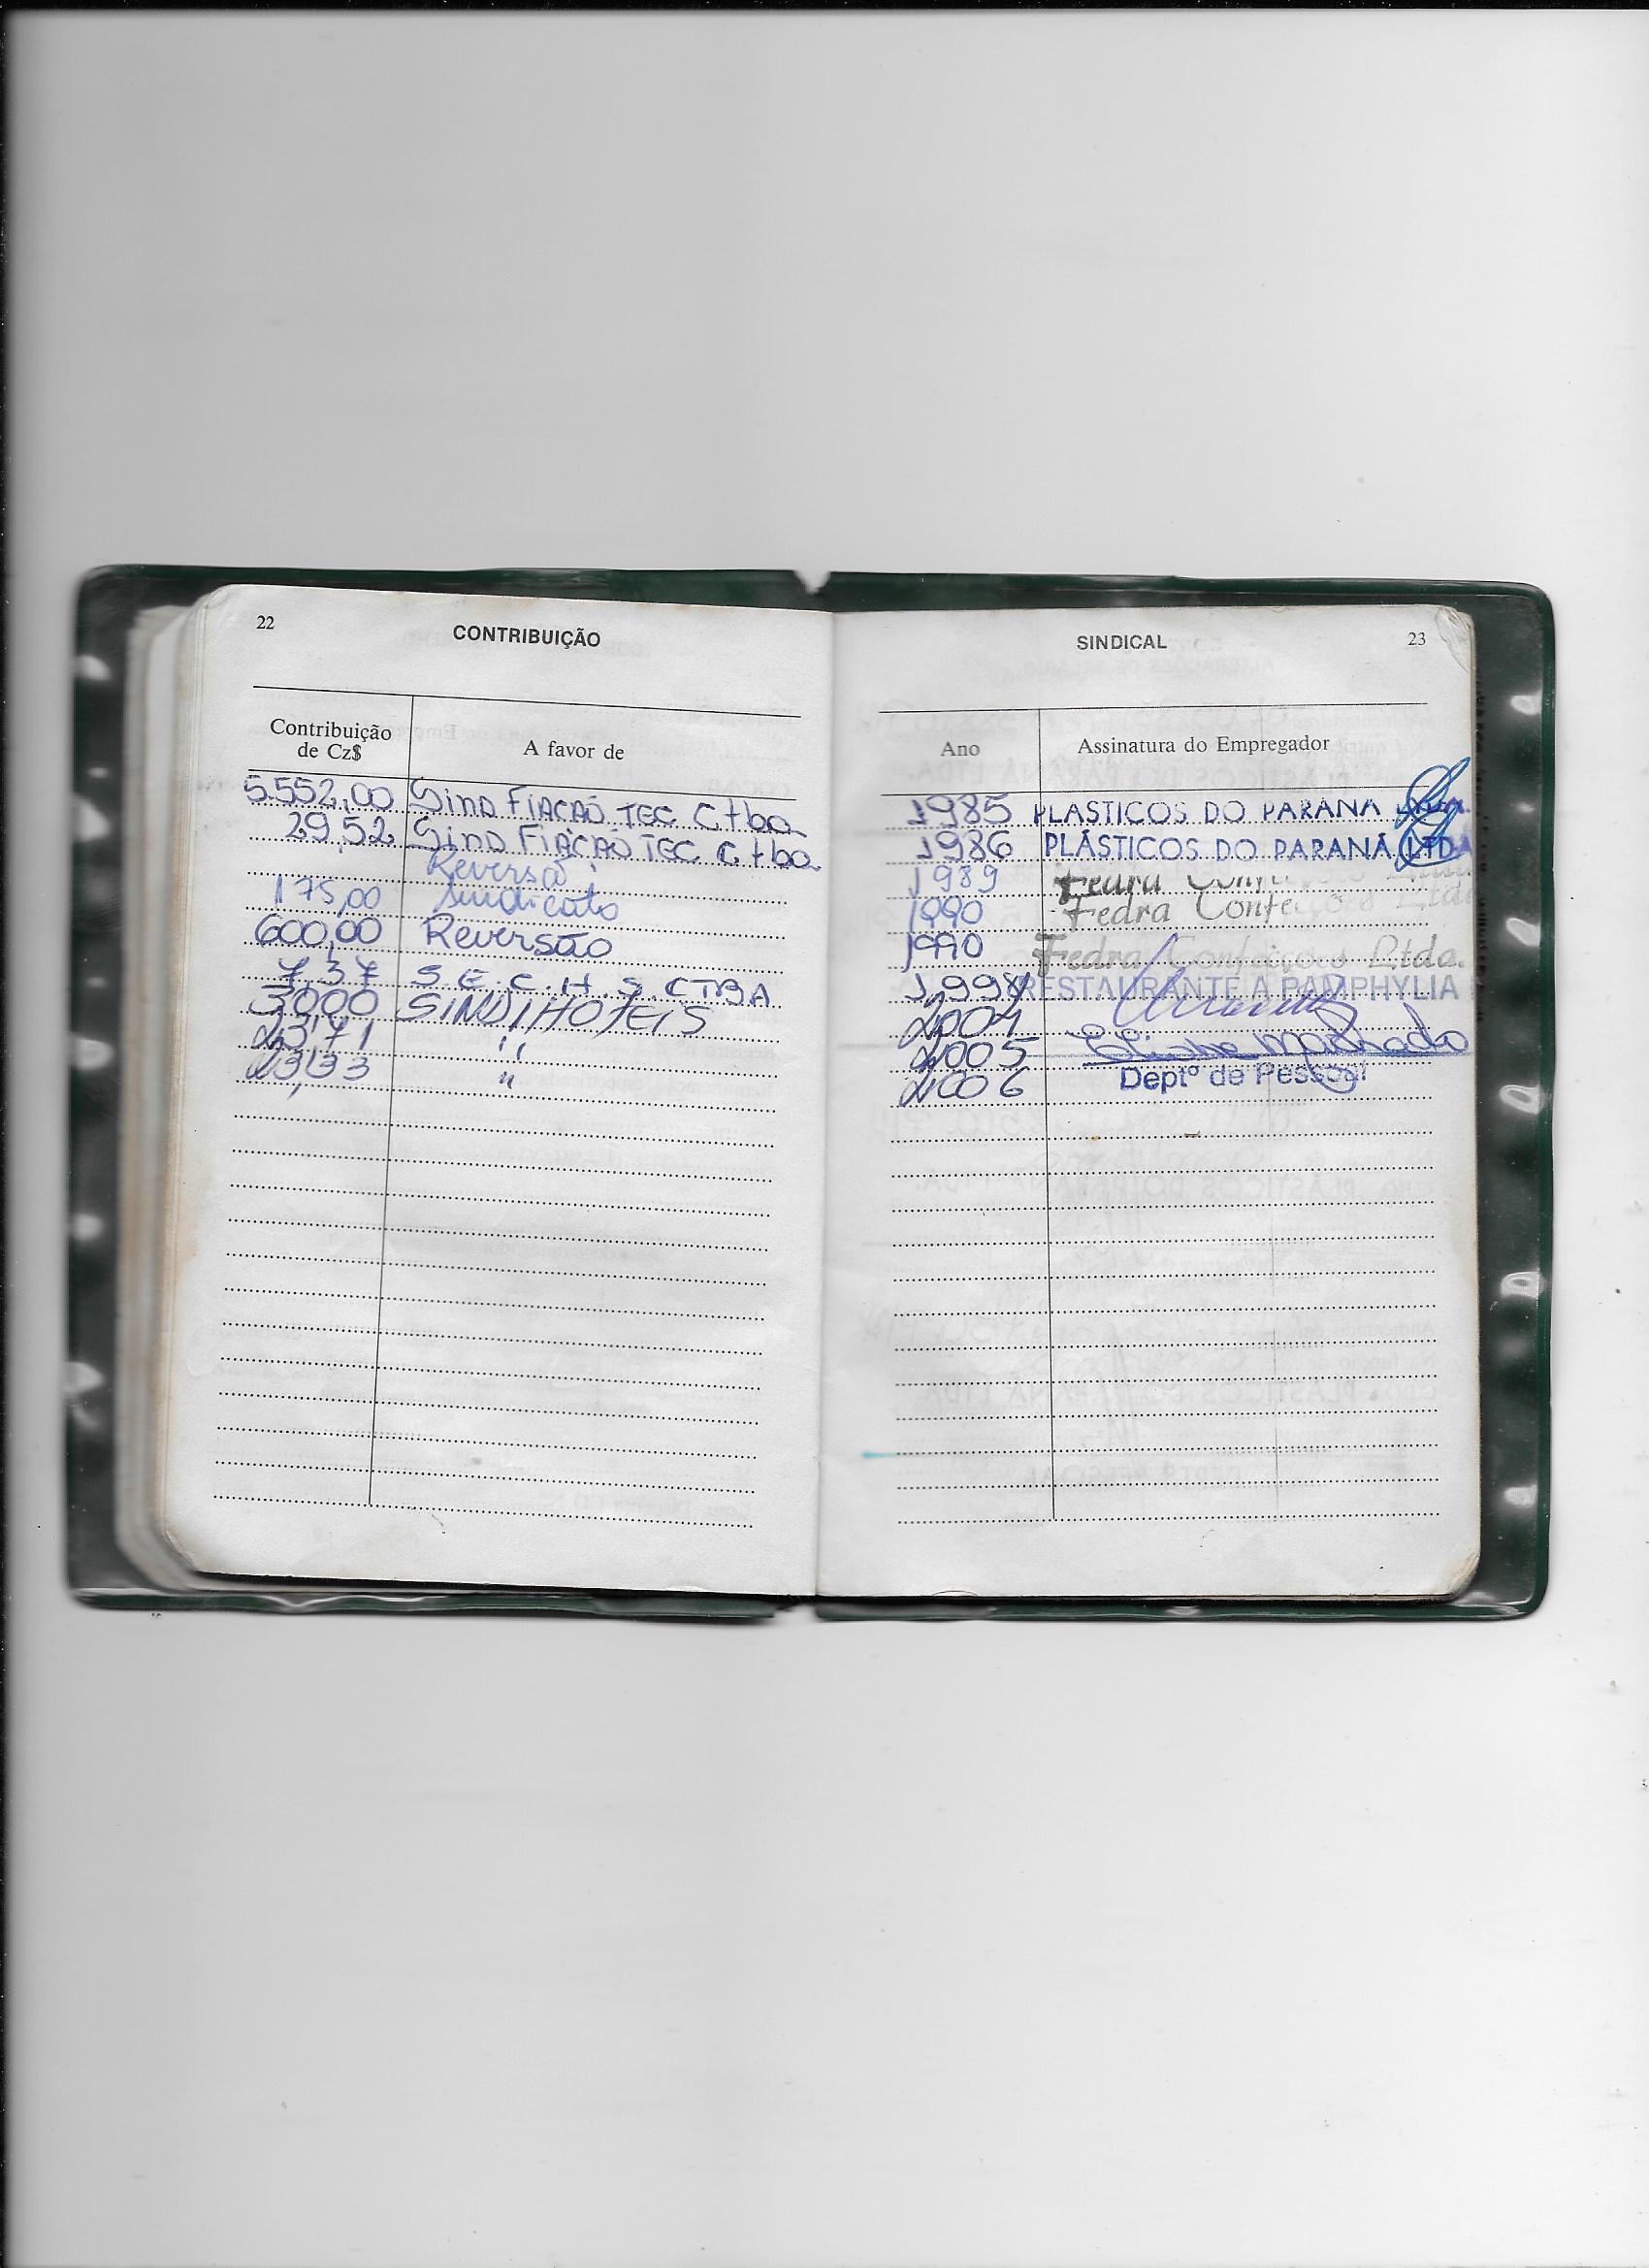 22
CONTRIBUIÇÃO
Contribuição
de Cz$
A favor de
5.552,00 Sind FIAÇÃO TEC Ctba
29,52 Sind FIAÇÃO TEC Ctba
Reversã
175,00 Sindicato
600,00 Reversão
7,37 S.E.C.H.S.CTBA
3000 SINDIHOTEIS
23,71 "
23,33 "
SINDICAL
23
Ano
Assinatura do Empregador
1985 PLASTICOS DO PARANA
1986 PLÁSTICOS DO PARANÁ LTDA
1989 Fedra
1990 Fedra Confecções Ltda
1990 Fedra Confecções Ltda.
1998 RESTAURANTE A PAMPHYLIA
2004
2005 Machado
2006 Deptº de Pessoal